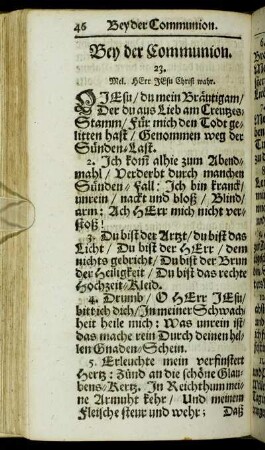 46 Bey der Communion.
Bey der Communion.
23.
Mel. HErr JEsu Christ wahr.
O JEsu / du mein Bräutigam /
Der du aus Lieb am Creutzes
Stamm / Für mich den Todt ge-
litten hast / Genommen weg der
Sünden-Last.
2. Ich kom̃ alhie zum Abend-
mahl / Verderbt durch manchen
Sünden-Fall: Ich bin kranck /
unrein / nackt und bloß / Blind /
arm: Ach HErr mich nicht ver-
stoß!
3. Du bist der Artzt / du bist das
Licht / Du bist der HErr / dem
nichts gebricht / Du bist der Brun
der Heiligkeit / Du bist das rechte
Hochzeit-Kleid.
4. Drumb / O HErr JEsu /
bitt ich dich / In meiner Schwach-
heit heile mich: Was unrein ist /
das mache rein Durch deinen hel-
len Gnaden-Schein.
5. Erleuchte mein verfinstert
Hertz: Zünd an die schöne Glau-
bens-Kertz. In Reichthum mei-
ne Armuht kehr / Und meinem
Fleische steur und wehr;
Daß